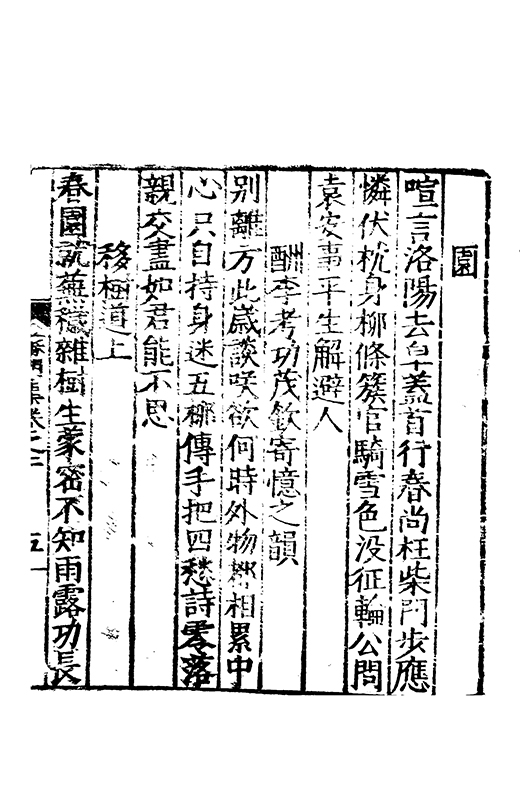 園
喧言洛陽去皁蓋首行春尚枉柴門步應
憐伏枕身柳條簇官騎雪色没征輪公問
袁安事平生解避人
酬李考功茂欽寄憶之韻
别離方此歲談笑欲何時外物鄉相累中
心只自持身迷五柳傳手把四愁詩零落
親交盡如君能不思
移樹道上
春園就蕪穢雜樹生蒙密不知雨露功長
集卷之三
五